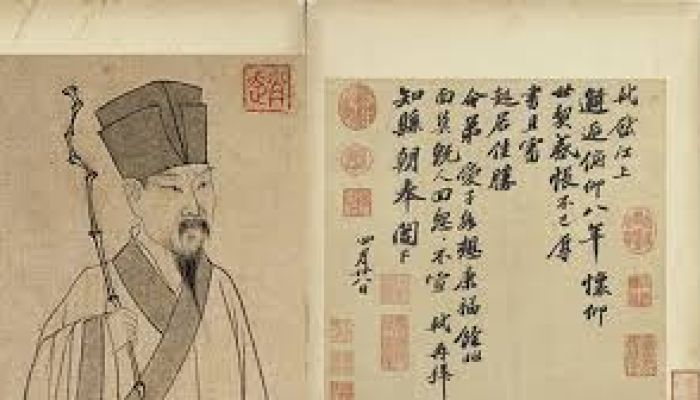 軾啓江上
邂逅俯仰八年懷仰
世契感悵不已辱
書且審
起居佳勝
令弟愛子各想康福餘非
面莫既人回怱怱不宣軾再拜
知縣朝奉閤下
四月廿八日